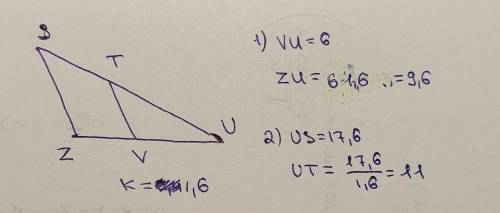 S
T
U
Z
V
K = 1,6
1) VU = 6
ZU = 6·1,6 = 9,6
2) US = 17,6
UT = 17,6/1,6 = 11